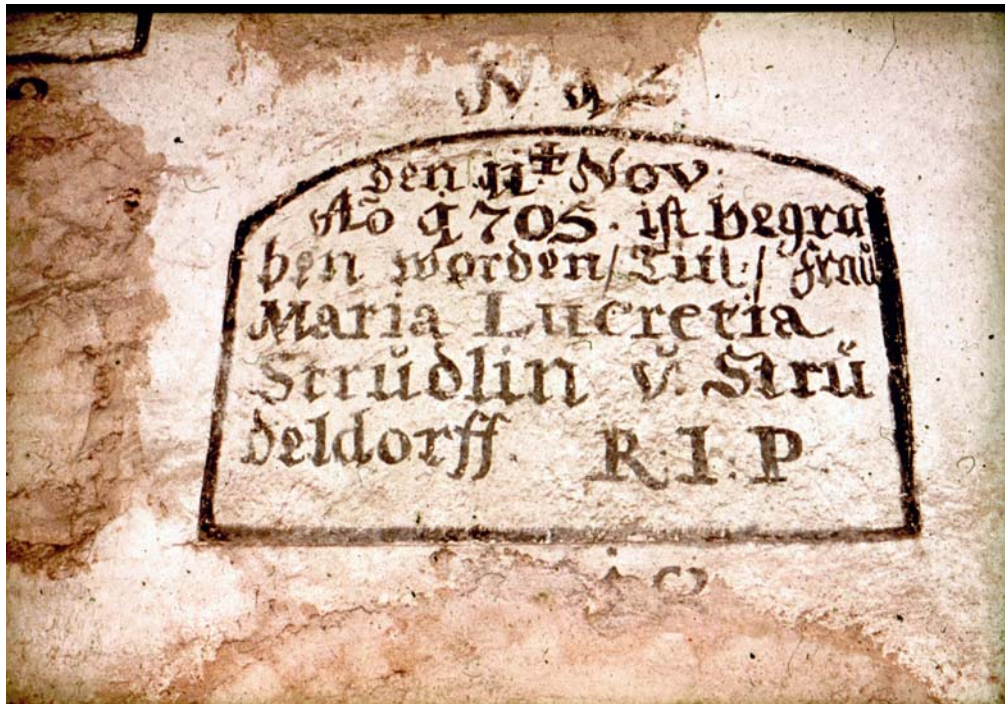 den 11 Nov:
Aõ 1705. ist begra
ben worden/Titl:/ Fraŭ
Maria Lucretia
Strŭdlin v. Strŭ
deldorff R.I.P